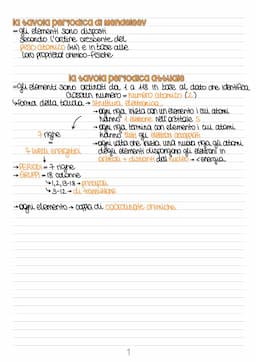 la tavola periodica di Mendeleev
→ gli elementi sono disposti
secondo l'ordine crescente del
peso atomico (MA) e in base alle
loro proprietà chimico-fisiche
la tavola periodica attuale
→ gli elementi sono ordinati da 1 a 118 in base al dato che identifica
ciascun numero → numero atomico (Z)
↳ forma della tavola → struttura elettronica
→ ogni riga inizia con un elemento i cui atomi
hanno 1 elettrone nell'orbitale S
→ ogni riga termina con elemento i cui atomi
7 righe
hanno tutti gli elettroni accoppiati
→ ogni volta che inizia una nuova riga gli atomi
7 livelli energetici
degli elementi dispongono gli elettroni in
orbitali + distanti dal nucleo → < energia
→ PERIODI = 7 righe
→ GRUPPI = 18 colonne
↳ 1, 2, 13-18 → principali
↳ 3-12 → di transizione
→ ogni elemento → coppia di coordinate chimiche
1